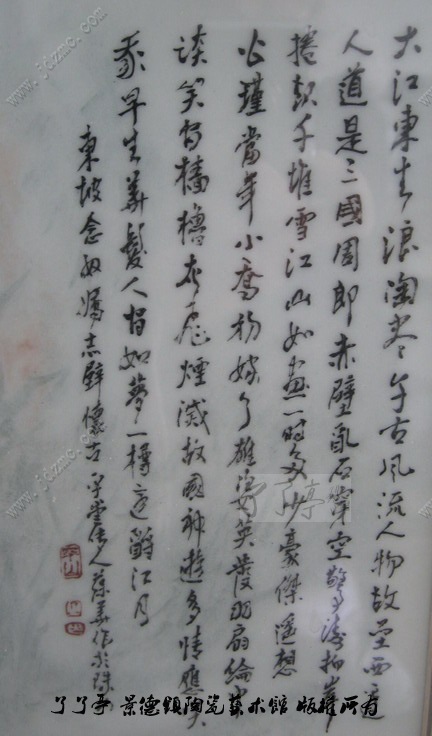 大江東去浪淘盡千古風流人物故壘西邊
人道是三國周郎赤壁亂石穿空驚濤拍岸
捲起千堆雪江山如畫一時多少豪傑遙想
公瑾當年小喬初嫁了雄姿英發羽扇綸巾
談笑間檣櫓灰飛煙滅故國神遊多情應笑
我早生華髮人間如夢一樽還酹江月
東坡念奴嬌赤壁懷古
作於珠
了了亭 景德镇陶瓷艺术馆 版权所有
www.jdzmo.com